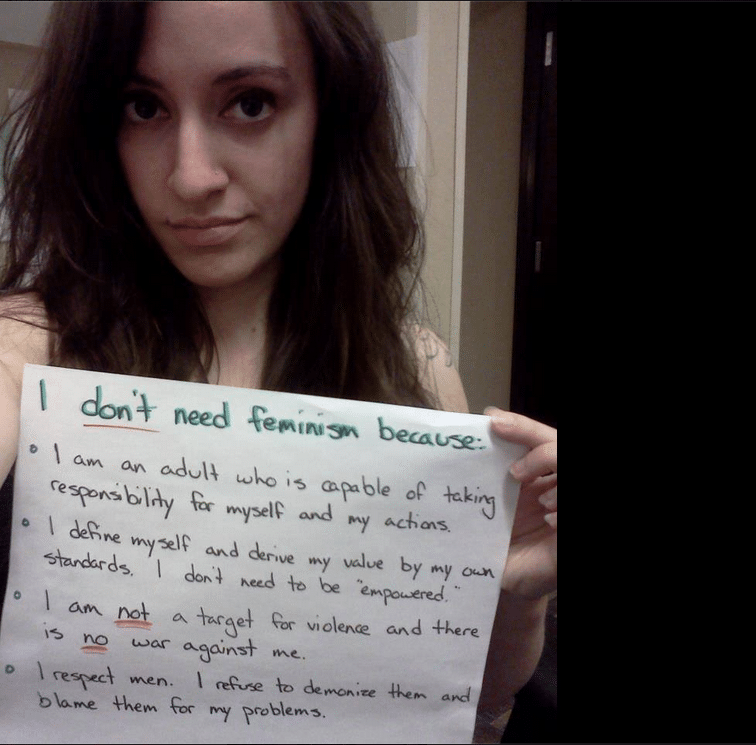 I don't need feminism because:
I am an adult who is capable of taking
responsibility for myself and my actions.
I define myself and derive my value by my own
standards. I don't need to be "empowered."
I am not a target for violence and there
is no war against me.
I respect men. I refuse to demonize them and
blame them for my problems.